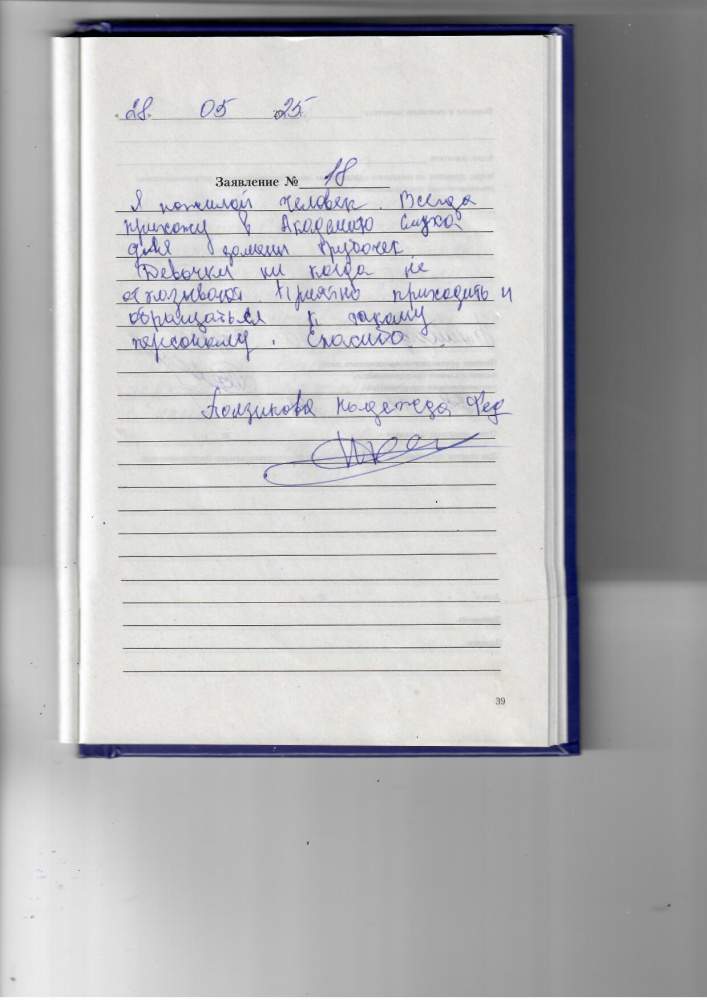 28. 05 25
Заявление № 18
Я пожилой человек. Всегда
прихожу в Академию Слуха
для замены трубочек
Девочки ни когда не
отказывают Приятно приходить и
обращаться к такому
персоналу. Спасибо
Надежда Фед
39